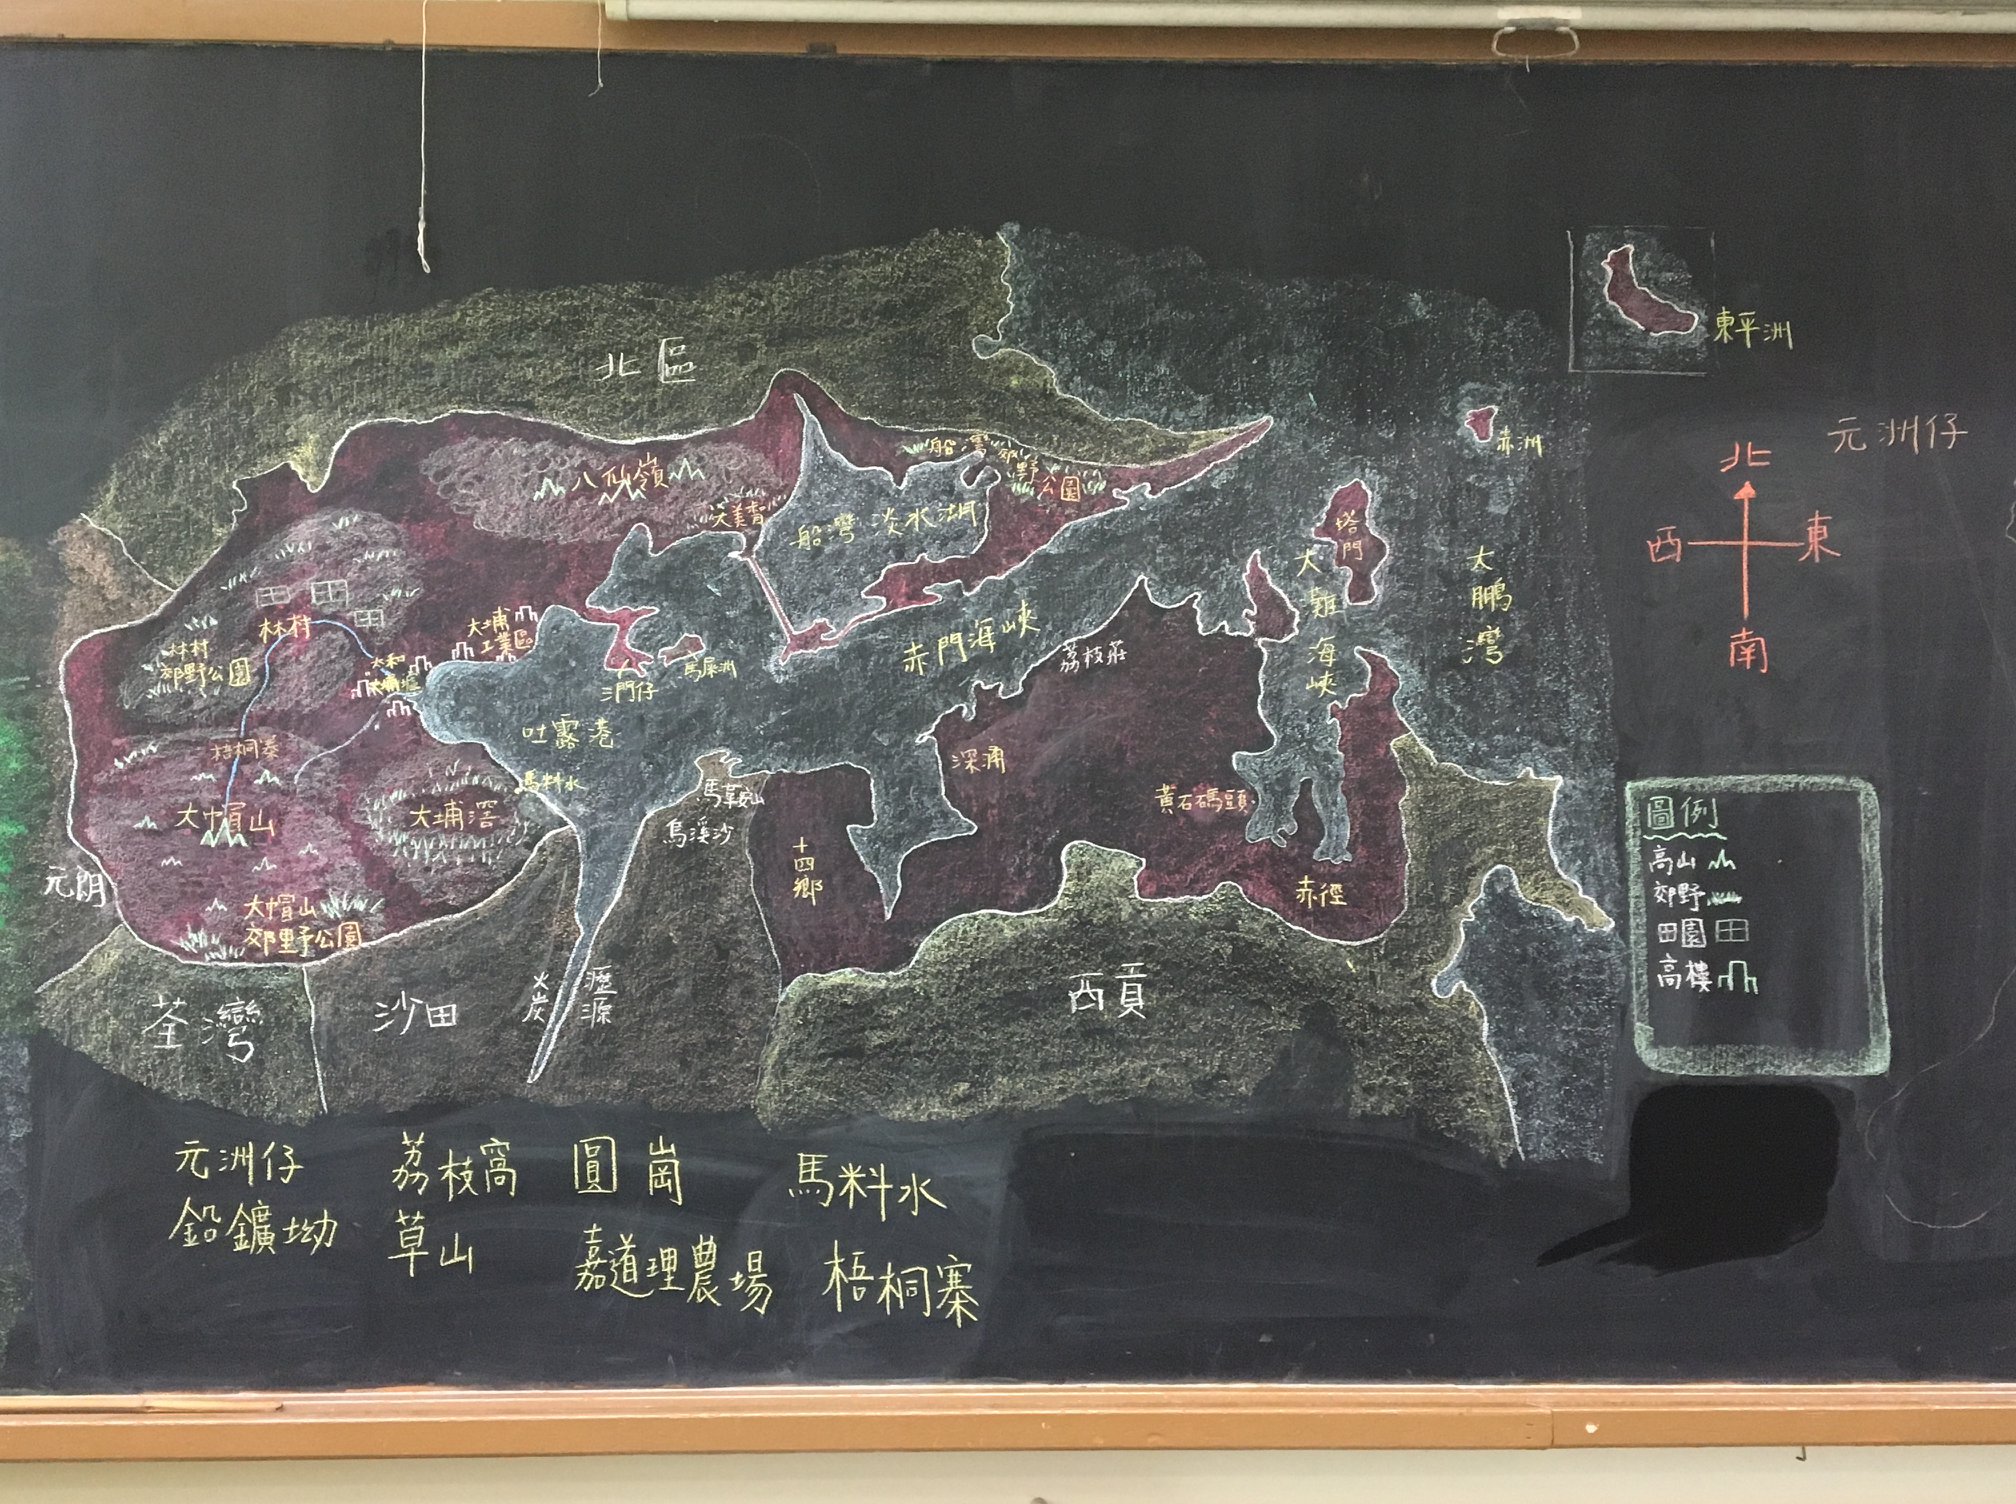 北區
東平洲
元洲仔
北
西 東
南
赤洲
船灣郊野公園
八仙嶺
大美督
船灣淡水湖
塔門
大鵬灣
大灘海峽
赤門海峽
荔枝莊
林村
林村
郊野公園
大和
大埔墟
大埔
工業區
三門仔
馬屎洲
吐露港
深涌
梧桐寨
馬料水
馬鞍山
烏溪沙
黃石碼頭
大帽山
大埔滘
十四鄉
赤徑
元朗
大帽山
郊野公園
荃灣
沙田
火炭
瀝源
西貢
圖例
高山
郊野
田園
高樓
元洲仔 荔枝窩 圓崗 馬料水
鉛鑛坳 草山 嘉道理農場 梧桐寨